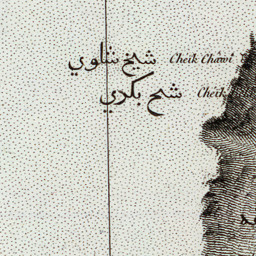 شيخ شاوي Cheik Châwi
شيخ بكري Cheik